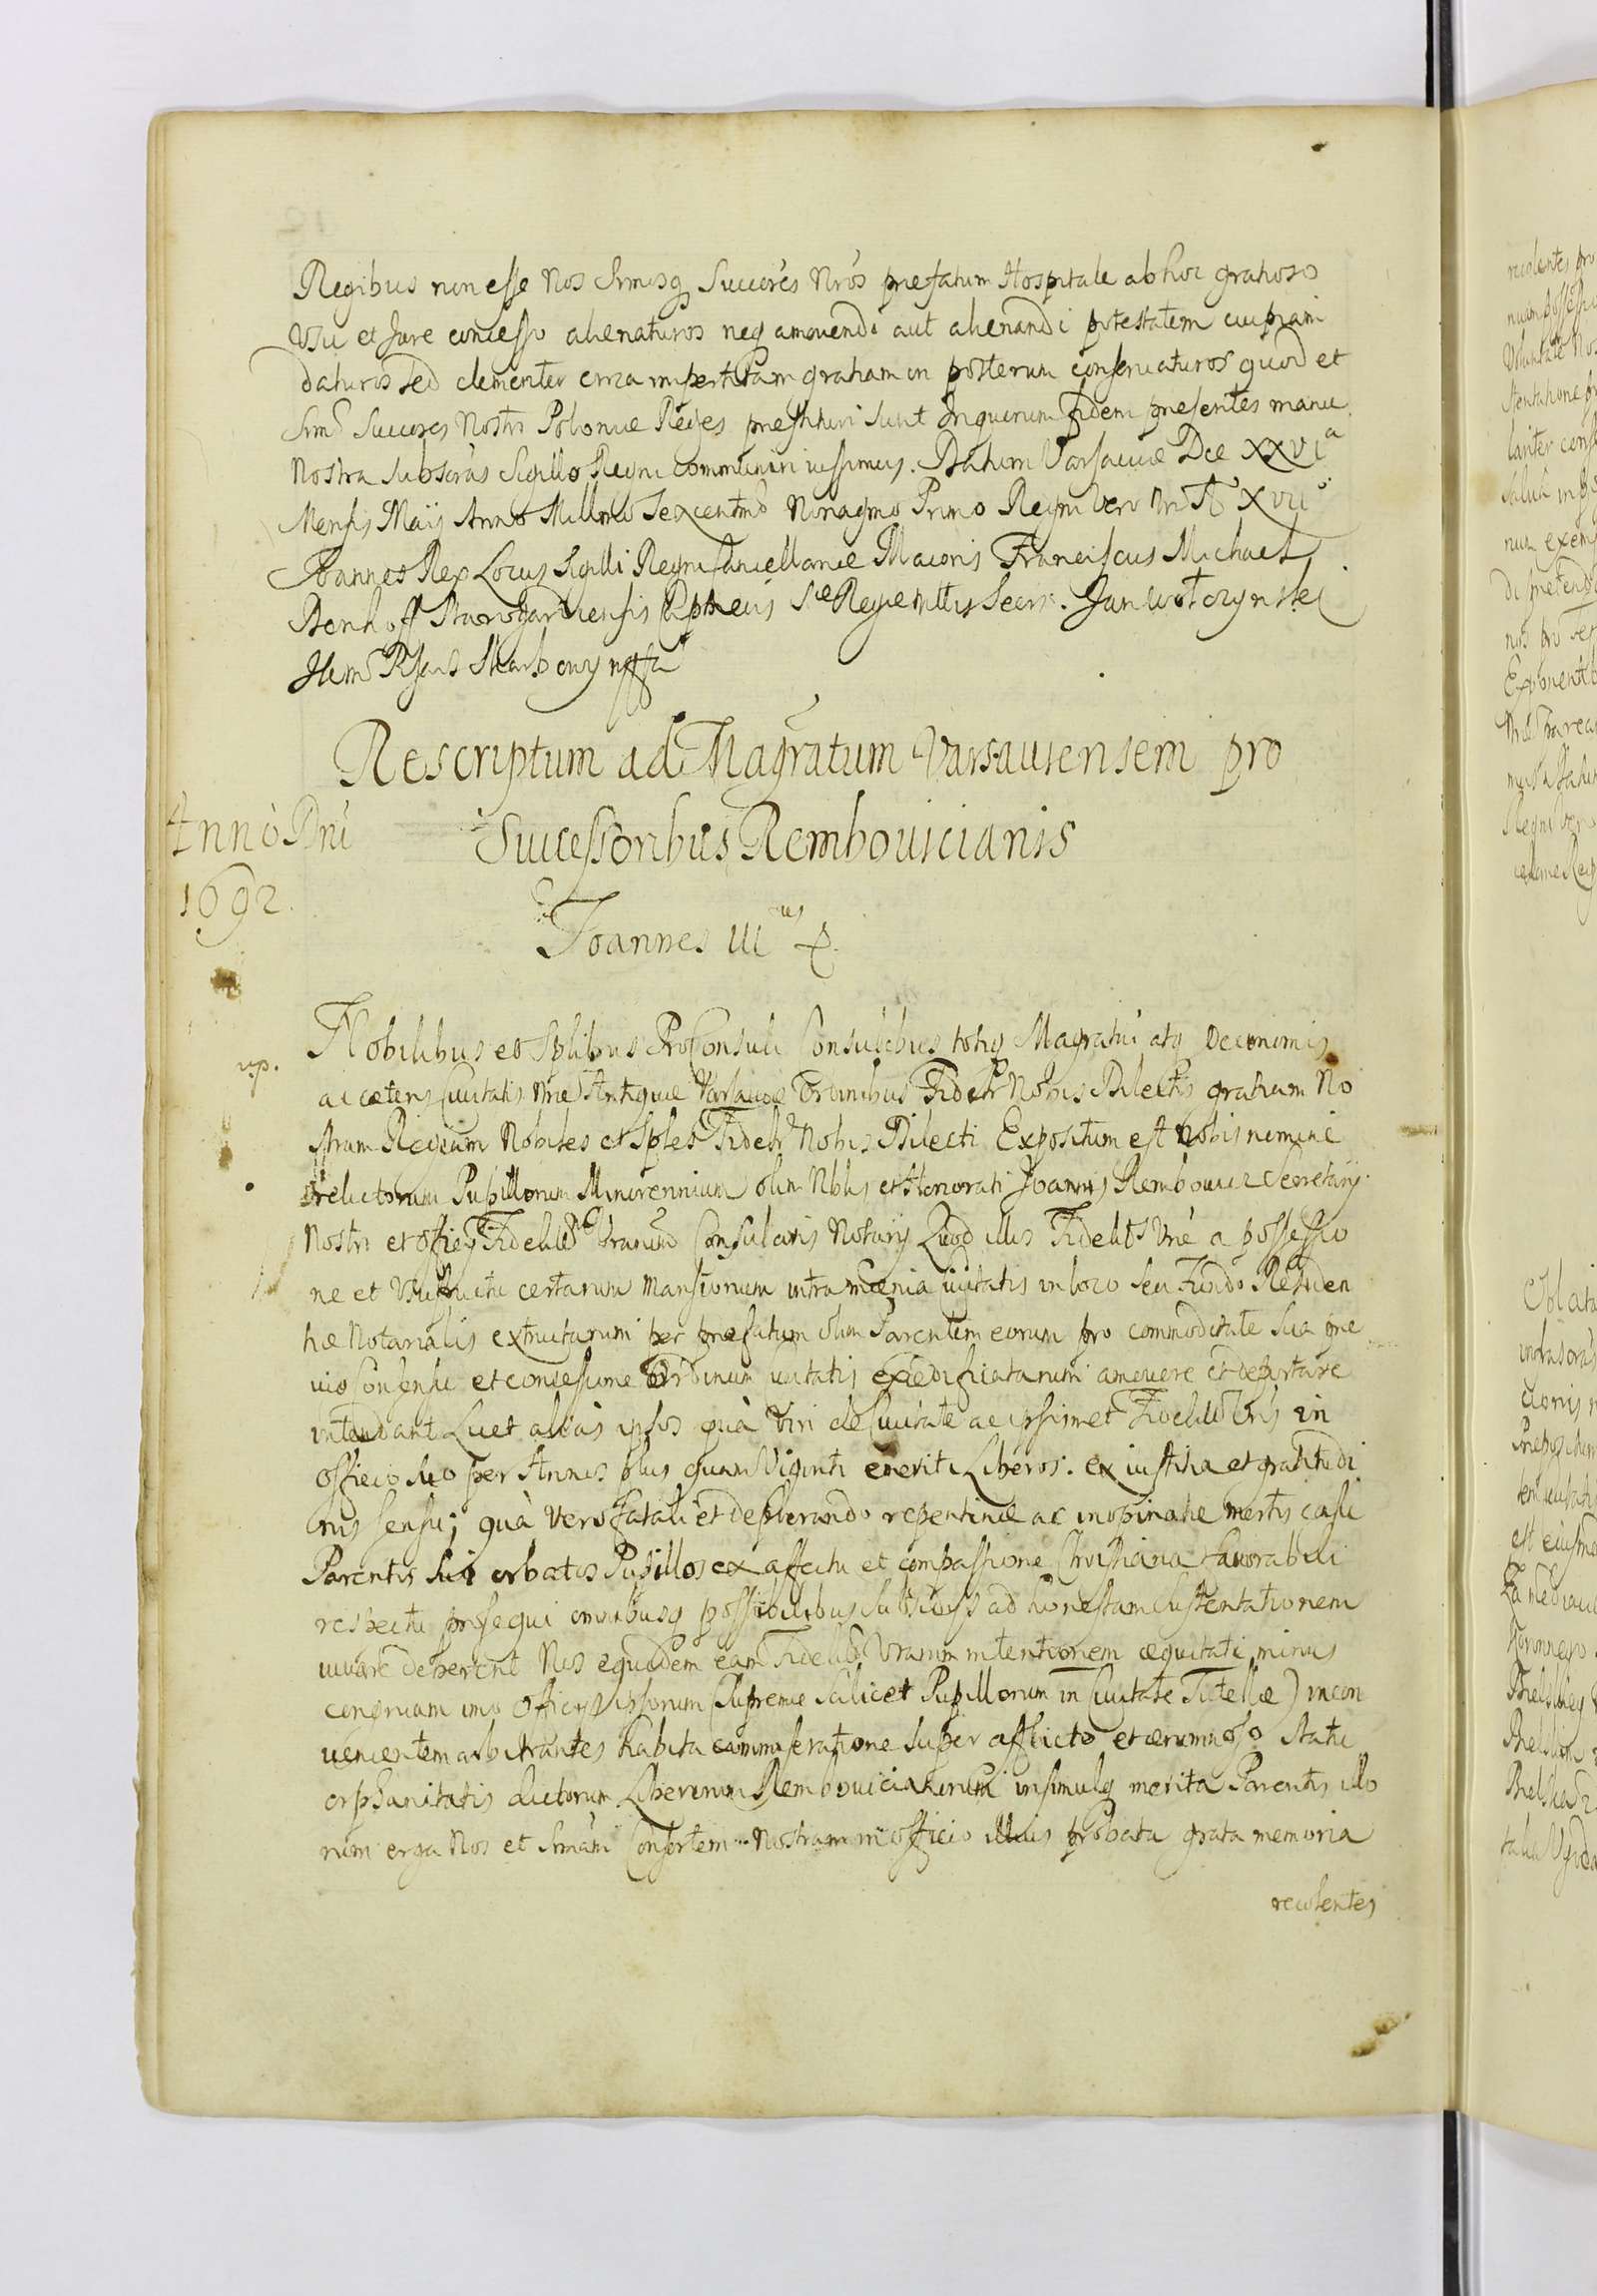 Regibus non esse Nos Srmosq Succores Nros prefatum Hospitale ab hoc gratioso
Usu et Jure concesso alienaturos neq amovendi aut alienandi potestatem cuipiam
daturos sed clementer circa impertitam gratiam in posterum conservaturos quod et
Srmi Succores Nostri Poloniæ Reges præstituri sunt In quorum fidem presentes manu
Nostra subscras Sigillo Regni communiri iussimus. Datum Varsaviæ Die XXVIa
Mensis Maij Anno Millmo Sexcentmo Nonagmo Primo Regni vero Nri Ao XVIIo
Joannes Rex Locus Sigilli Regni Cancellariæ Maioris Franciscus Michael
Denhoff Starogardiensis Capneus Sæ Regiæ Mttis Secrr. Jan Wotczynski
Rescriptum ad Magratum Varsaviensem pro
Successoribus Rembovicianis
Anno Dni
1692.
Joannes IIIus
Nobilibus et Splibus ProConsuli Consulibus totiq Magratui atq Deconomis
ac cæteris Civitatis Nræ Antiquæ Varsaviæ Ordinibus Fidelr Nobis Dilectis gratiam No
stram Regiam Nobiles et Sples Fidelr Nobis Dilecti Expositum est Nobis nomine
relictorum Pupillorum Minorennium olim Nblis et Honorati Joannis Rembowicz Secretarij
Nostri et officij Fidelitd Vrarum Consularis Notarij Quod illos Fidelits Vræ a possessio
ne et Usufructu certarum Mansionum intra mœnia civitatis in loco seu Fundo Residen
tiæ Notarialis extructarum per præfatum olim Parentem eorum pro commoditate sua præ
vio Consensu et concessione Ordinum civitatis exædificatarum amovere et deportare
intendant Licet alias ipsos quà Viri de Civitate ac ipsismet Fidelitd Vris in
officio suo per Annos plus quam Viginti emeriti Liberos. ex iustitia et gratitudi
nis sensu; quà vero fatali et deplorando repentinæ ac inopinatæ mortis casu
Parentis sui orbatos Pupillos ex affectu et compassione Christiana Favorabili
respectu prosequi omnibusq possibilibus subsidijs ad honestam sustentationem
iuvare deberent Nos equidem eam Fidelitd Vrarum intentionem æquitati minus
congruam imo Officio ipsorum (Supremæ scilicet Pupillorum in Civitate Tutellæ) incon
venientem arbitrantes habita commiseratione super afflicto et ærumnoso statu
orphanitatis dictorum Liberorum Rembovicianorum insimulq merita Parentis illo
rum erga Nos et Srmam Consortem Nostram in officio illius probata grata memoria
recolentes